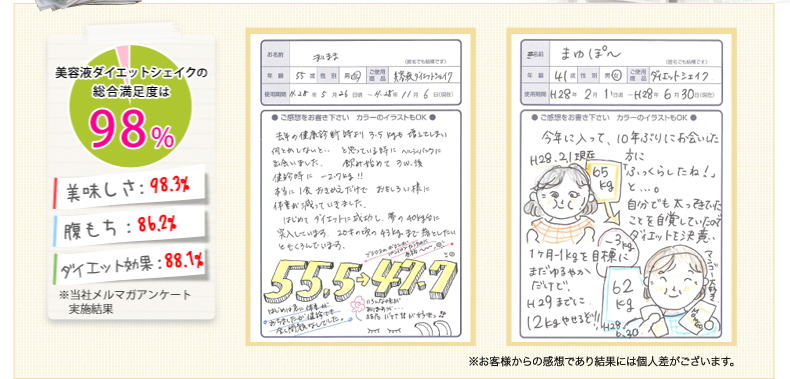 美容液ダイエットシェイクの
総合満足度は
98%
美味しさ：98.3%
腹もち：86.2%
ダイエット効果：88.1%
※当社メルマガアンケート
実施結果
お名前
(匿名でも結構です)
年 齢 55 歳 性 別 男 女 ご使用商品 美容液ダイエットシェイク
使用期間 H.28 年 5 月 26 日頃 ～ H.28 年 11 月 6 日(現在)
● ご感想をお書き下さい カラーのイラストもOK ●
去年の健康診断時より 3.5kgも増えてしまい
何とかしないと.. と思っている時に
出会いました. 飲み始めて 3W.後
健診時に -2.7kg!!
本当に1食おきかえだけで おもしろい様に
体重が減っていきました.
はじめてダイエットに成功し 夢の40kg台に
突入しています. 20才の頃の43kgまで落としたい
55.5→47.7
お名前 まゆぽ〜
(匿名でも結構です)
年 齢 41 歳 性 別 男 女 ご使用商品 ダイエットシェイク
使用期間 H28 年 2 月 1 日頃 ～ H28 年 6 月 30 日(現在)
● ご感想をお書き下さい カラーのイラストもOK ●
今年に入って、10年ぶりにお会いした
方に
「ふっくらしたね！」
と…。
自分でも太ってきていた
ことを自覚していたので
ダイエットを決意..
H28.2.1現在
65
kg
-3kg
1ヶ月-1kgを目標に
まだゆるやか
だけど、
H29までに
12kgやせるぞ!!
62
kg
H28.
6.30
マンゴー大好き
※お客様からの感想であり結果には個人差がございます。